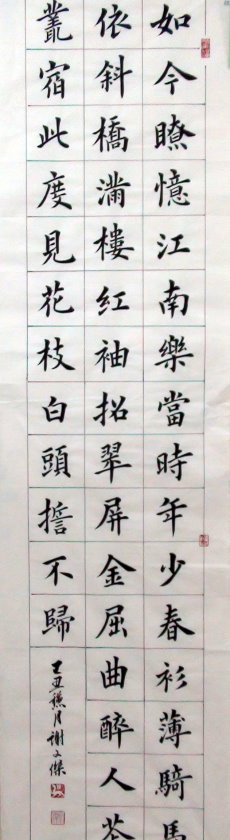 如今瞭憶江南樂當時年少春衫薄騎馬
依斜橋滿樓紅袖招翠屏金屈曲醉人花
叢宿此度見花枝白頭誓不歸
丁丑穐月謝文傑